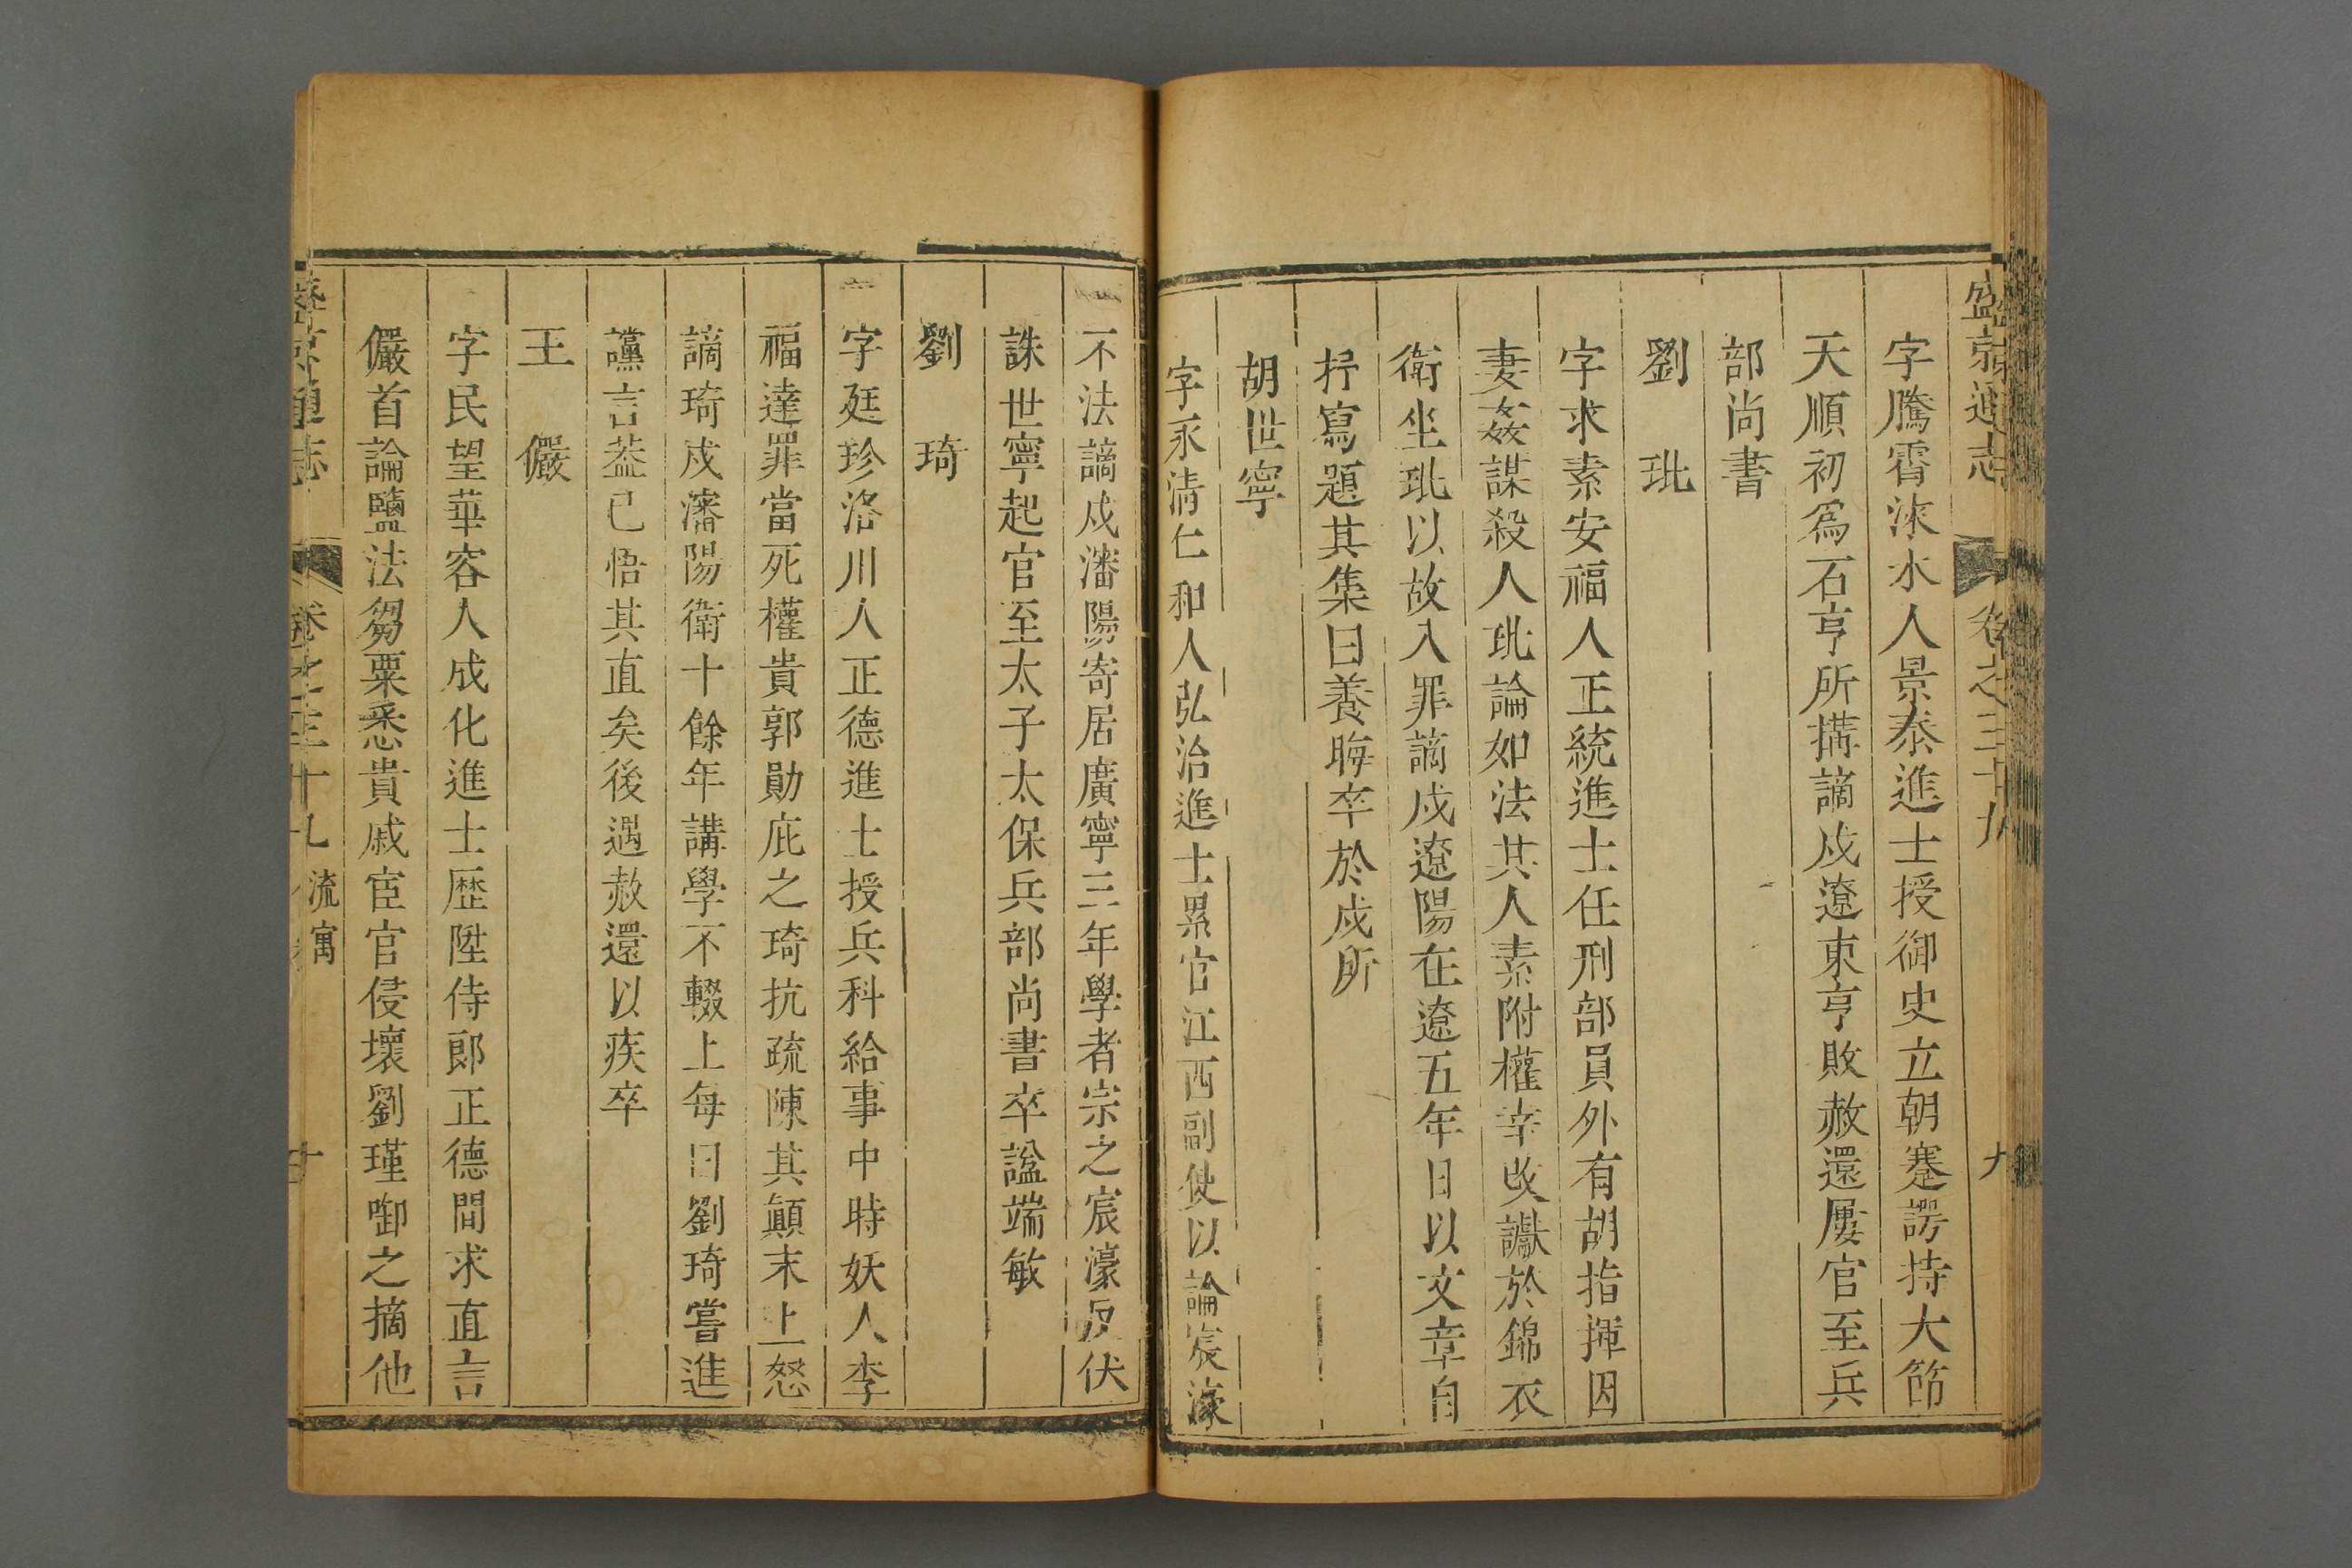 盛京通志 卷之三十九 九
字騰霄淶水人景泰進士授御史立朝蹇諤持大節
天順初爲石亨所搆謫戍遼東亨敗赦還屢官至兵
部尚書
劉 玭
字求素安福人正統進士任刑部員外有胡指揮因
妻姦謀殺人玭論如法其人素附權幸改讞於錦衣
衛坐玭以故入罪謫戍遼陽在遼五年日以文章自
抒寫題其集曰養晦卒於戍所
胡世寧
字永清仁和人弘治進士累官江西副使以論宸濠
不法謫戍瀋陽寄居廣寧三年學者宗之宸濠反伏
誅世寧起官至太子太保兵部尚書卒諡端敏
劉 琦
字廷珍洛川人正德進士授兵科給事中時妖人李
福達罪當死權貴郭勛庇之琦抗疏陳其顛末上怒
謫琦戍瀋陽衛十餘年講學不輟上每曰劉琦嘗進
讜言葢已悟其直矣後遇赦還以疾卒
王 儼
字民望華容人成化進士歷陞侍郎正德間求直言
儼首論鹽法芻粟悉貴戚宦官侵壞劉瑾啣之摘他
盛京通志 卷之三十九 流寓 十